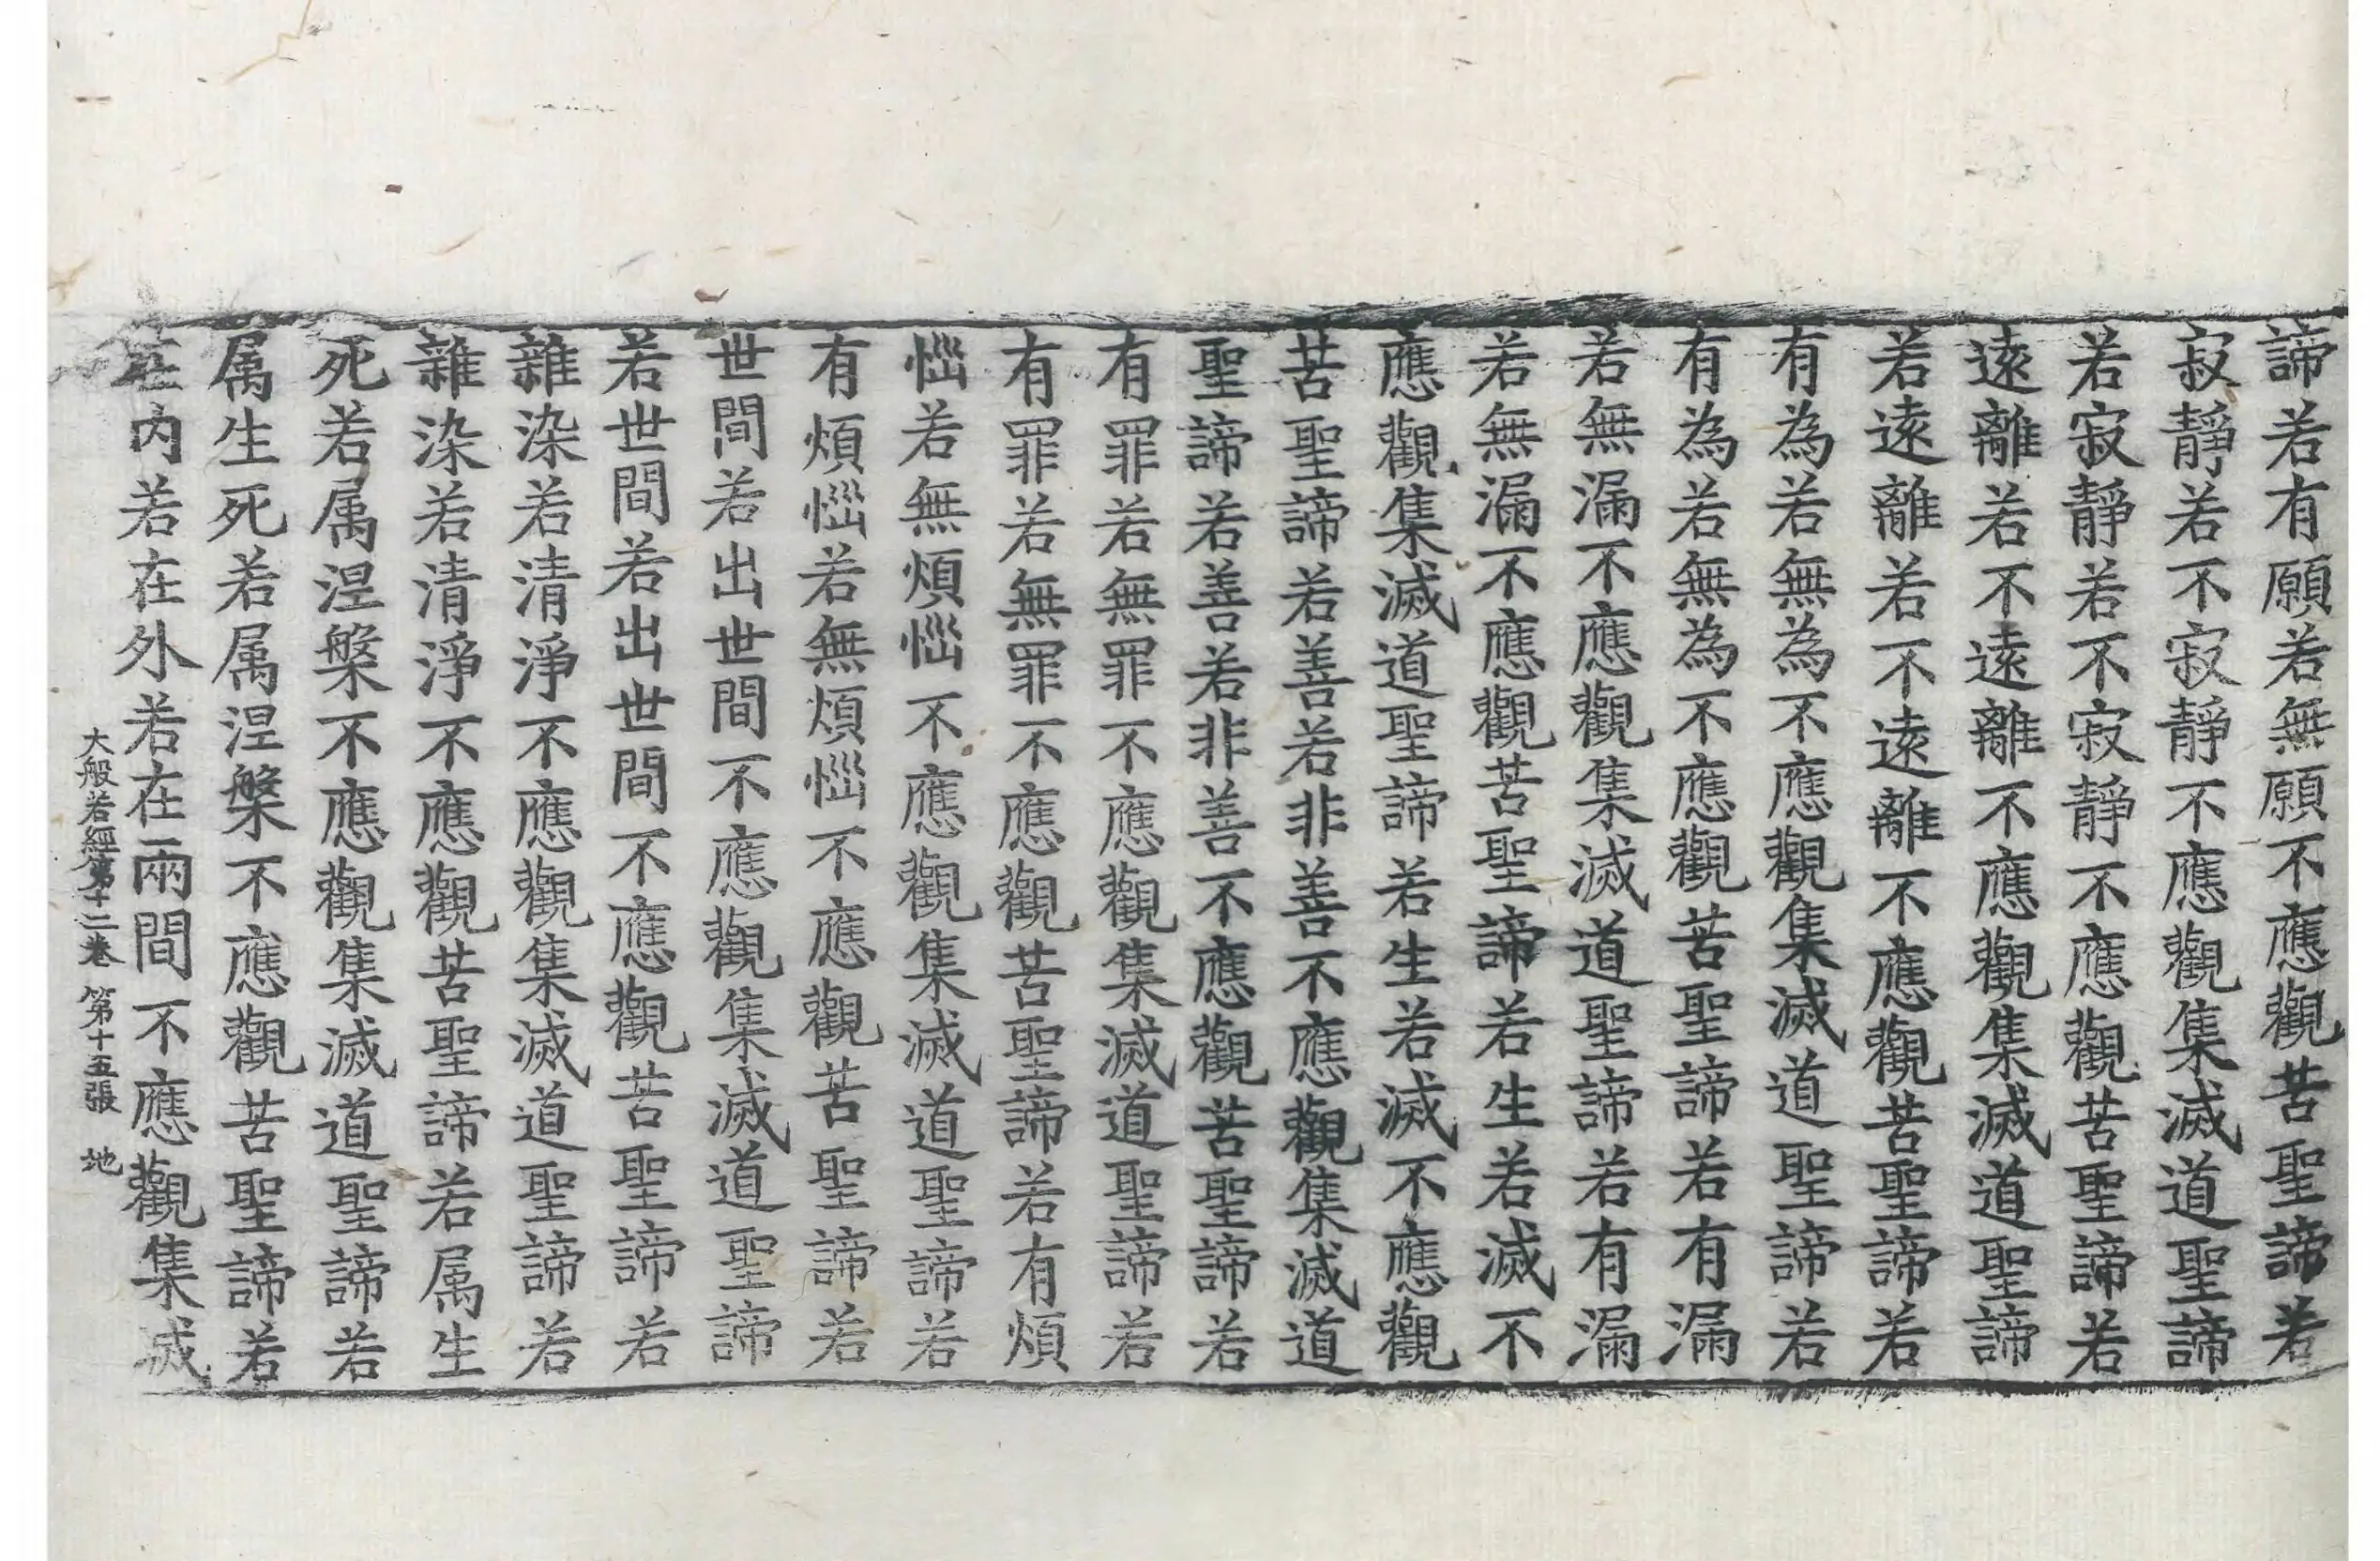 諦若有願若無願不應觀苦聖諦若
寂靜若不寂靜不應觀集滅道聖諦
若寂靜若不寂靜不應觀苦聖諦若
遠離若不遠離不應觀集滅道聖諦
若遠離若不遠離不應觀苦聖諦若
有為若無為不應觀集滅道聖諦若
有為若無為不應觀苦聖諦若有漏
若無漏不應觀集滅道聖諦若有漏
若無漏不應觀苦聖諦若生若滅不
應觀集滅道聖諦若生若滅不應觀
苦聖諦若善若非善不應觀集滅道
聖諦若善若非善不應觀苦聖諦若
有罪若無罪不應觀集滅道聖諦若
有罪若無罪不應觀苦聖諦若有煩
惱若無煩惱不應觀集滅道聖諦若
有煩惱若無煩惱不應觀苦聖諦若
世間若出世間不應觀集滅道聖諦
若世間若出世間不應觀苦聖諦若
雜染若清淨不應觀集滅道聖諦若
雜染若清淨不應觀苦聖諦若属生
死若属涅槃不應觀集滅道聖諦若
属生死若属涅槃不應觀苦聖諦若
在內若在外若在兩間不應觀集滅
大般若經第十二卷 第十五張 地